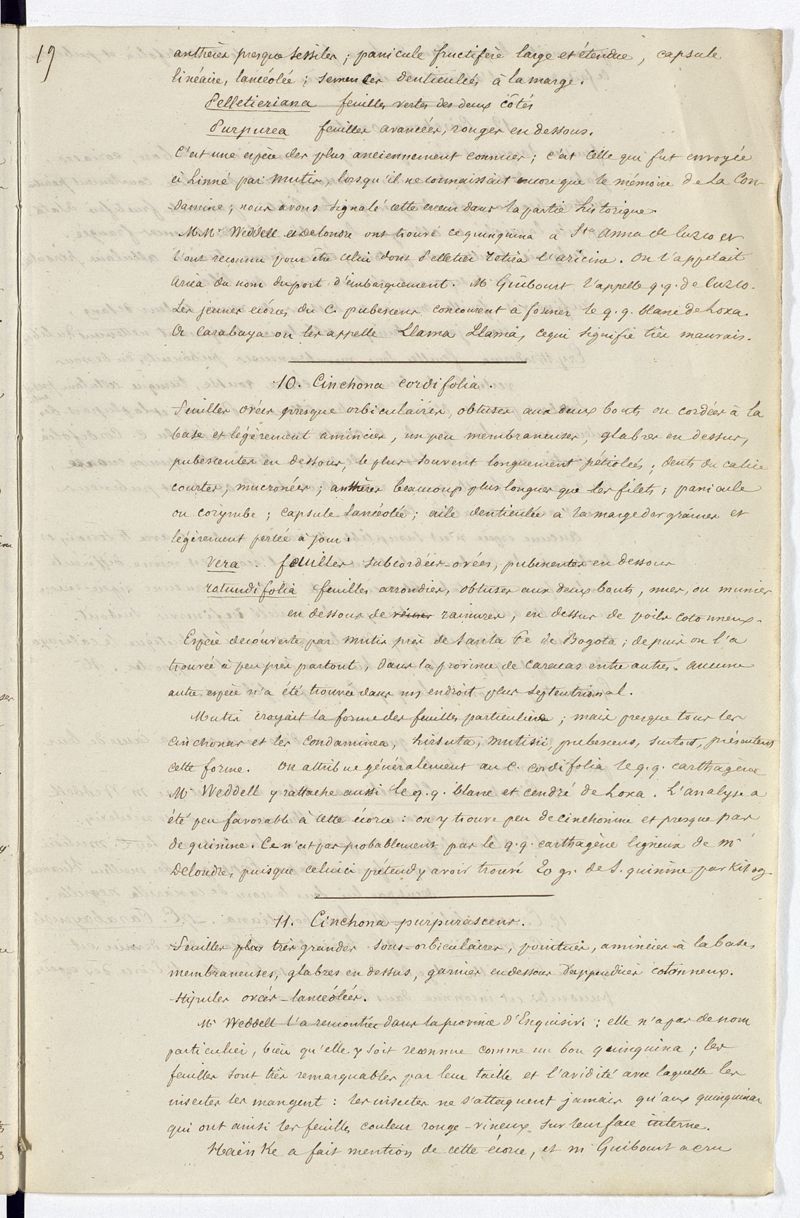 19
anthères presque sessiles ; panicule fructifère large et étendue, capsule
linéaire, lancéolée ; semences denticulées à la marge.
Pelletieriana feuilles vertes des deux côtés
Purpurea feuilles avancées, rouges en dessous.
C'est une espèce des plus anciennement connues ; c'est celle qui fut envoyée
à Linné par Mutis, lorsqu'il ne connaissait encore que le mémoire de La Con-
damine ; nous avons signalé cette erreur dans la partie historique.
M.Mrs Weddell et Delondre ont trouvé ce quinquina à Sta Anna de Cuzco et
l'ont reconnu pour être celui dont Pelletier retira l'aricine. On l'appelait
Arica du nom du port d'embarquement. Mr Guibourt l'appelle q.q. de Cuzco.
Les jeunes écorces du C. pubescens concourent à former le q.q. blanc de Loxa.
A Carabaya on les appelle Llama Llama, ce qui signifie très mauvais.
10. Cinchona cordifolia.
Feuilles ovées presque orbiculaires, obtuses aux deux bouts ou cordées à la
base et légèrement amincies, un peu membraneuses, glabres en dessus,
pubescentes en dessous, le plus souvent longuement pétiolées ; dents du calice
courtes, mucronées ; anthères beaucoup plus longues que les filets ; panicule
ou corymbe ; capsule lancéolée ; aile denticulée à la marge des graines et
légèrement percée à jour.
Vera . feuilles subcordées-ovées, pubescentes en dessous
rotundifolia feuilles arrondies, obtuses aux deux bouts, nues, ou munies
en dessous de rainures, en dessus de poils cotonneux.
Espèce découverte par Mutis près de Santa Fe de Bogota ; depuis on l'a
trouvée à peu près partout, dans la province de Caracas entre autres. Aucune
autre espèce n'a été trouvée dans un endroit plus septentrional.
Mutis croyait la forme des feuilles particulière ; mais presque tous les
cinchonas et les condaminea, hirsuta, mutisii, pubescens, surtout, présentent
cette forme. On attribue généralement au C. cordifolia le q.q. carthagène
Mr Weddell y rattache aussi le q.q. blanc et cendré de Loxa. L'analyse a
été peu favorable à cette écorce : on y trouve peu de cinchonine et presque pas
de quinine. Ce n'est pas probablement par le q.q. carthagène ligneux de Mr
Delondre, puisque celui ci prétend y avoir trouvé 20 gr. de S. quinine par Kilog.
11. Cinchona purpurascens.
Feuilles très grandes sous-orbiculaires, pointues, amincies à la base,
membraneuses, glabres en dessus, garnies en dessous d'appendices cotonneux.
Stipules ovées-lancéolées.
Mr Weddell l'a rencontrée dans la province d'Enquisivi : elle n'a pas de nom
particulier, bien qu'elle y soit reconnue comme un bon quinquina ; les
feuilles sont très remarquables par leur taille et l'avidité avec laquelle les
insectes les mangent : les insectes ne s'attaquent jamais qu'aux quinquinas
qui ont ainsi les feuilles couleur rouge-vineux sur leur face interne.
Haënke a fait mention de cette écorce, et Mr Guibourt a cru